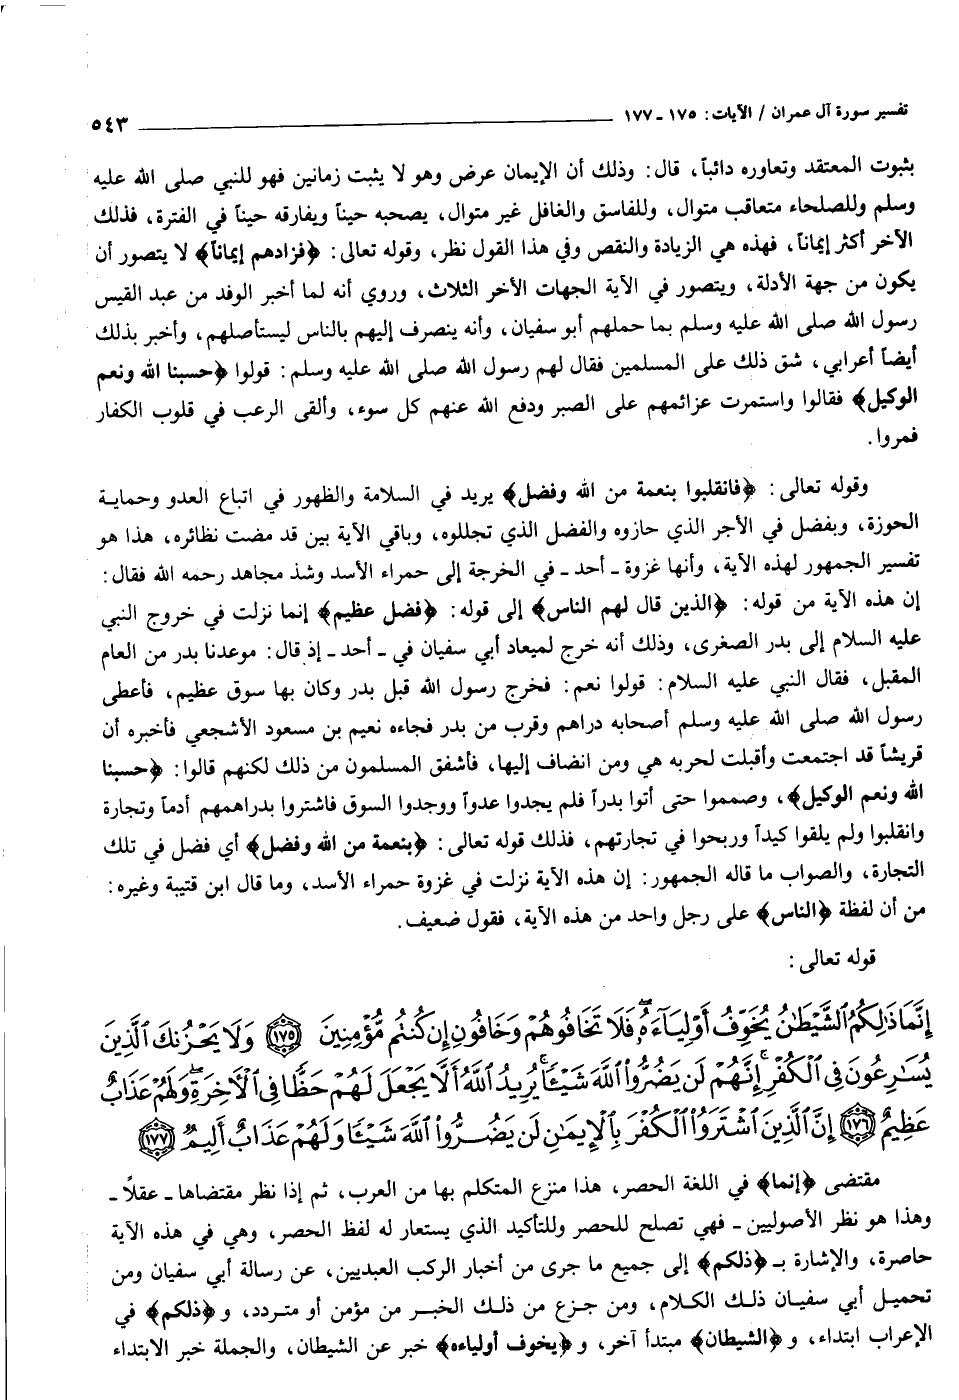 تفسير سورة آل عمران / الآيات: ١٧٥ ـ ١٧٧ ٥٤٣
بثبوت المعتقد وتعاوره دائباً، قال: وذلك أن الإيمان عرض وهو لا يثبت زمانين فهو للنبي صلى الله عليه
وسلم وللصلحاء متعاقب متوال، وللفاسق والغافل غير متوال، يصحبه حيناً ويفارقه حيناً في الفترة، فذلك
الآخر أكثر إيماناً، فهذه هي الزيادة والنقص وفي هذا القول نظر، وقوله تعالى: ﴿فزادهم إيماناً﴾ لا يتصور أن
يكون من جهة الأدلة، ويتصور في الآية الجهات الأخر الثلاث، وروي أنه لما أخبر الوفد من عبد القيس
رسول الله صلى الله عليه وسلم بما حملهم أبو سفيان، وأنه ينصرف إليهم بالناس ليستأصلهم، وأخبر بذلك
أيضاً أعرابي، شق ذلك على المسلمين فقال لهم رسول الله صلى الله عليه وسلم: قولوا ﴿حسبنا الله ونعم
الوكيل﴾ فقالوا واستمرت عزائمهم على الصبر ودفع الله عنهم كل سوء، وألقى الرعب في قلوب الكفار
فمروا.
وقوله تعالى: ﴿فانقلبوا بنعمة من الله وفضل﴾ يريد في السلامة والظهور في اتباع العدو وحماية
الحوزة، وبفضل في الأجر الذي حازوه والفضل الذي تجللوه، وباقي الآية بين قد مضت نظائره، هذا هو
تفسير الجمهور لهذه الآية، وأنها غزوة ـ أحد ـ في الخرجة إلى حمراء الأسد وشذ مجاهد رحمه الله فقال:
إن هذه الآية من قوله: ﴿الذين قال لهم الناس﴾ إلى قوله: ﴿فضل عظيم﴾ إنما نزلت في خروج النبي
عليه السلام إلى بدر الصغرى، وذلك أنه خرج لميعاد أبي سفيان في ـ أحد ـ إذ قال: موعدنا بدر من العام
المقبل، فقال النبي عليه السلام: قولوا نعم: فخرج رسول الله قبل بدر وكان بها سوق عظيم، فأعطى
رسول الله صلى الله عليه وسلم أصحابه دراهم وقرب من بدر فجاءه نعيم بن مسعود الأشجعي فأخبره أن
قريشاً قد اجتمعت وأقبلت لحربه هي ومن انضاف إليها، فأشفق المسلمون من ذلك لكنهم قالوا: ﴿حسبنا
الله ونعم الوكيل﴾، وصمموا حتى أتوا بدراً فلم يجدوا عدواً ووجدوا السوق فاشتروا بدراهمهم أدماً وتجارة
وانقلبوا ولم يلقوا كيداً وربحوا في تجارتهم، فذلك قوله تعالى: ﴿بنعمة من الله وفضل﴾ أي فضل في تلك
التجارة، والصواب ما قاله الجمهور: إن هذه الآية نزلت في غزوة حمراء الأسد، وما قال ابن قتيبة وغيره:
من أن لفظة ﴿الناس﴾ على رجل واحد من هذه الآية، فقول ضعيف.
قوله تعالى:
إِنَّمَا ذَٰلِكُمُ ٱلشَّيْطَٰنُ يُخَوِّفُ أَوْلِيَآءَهُۥ فَلَا تَخَافُوهُمْ وَخَافُونِ إِن كُنتُم مُّؤْمِنِينَ ﴿١٧٥﴾ وَلَا يَحْزُنكَ ٱلَّذِينَ
يُسَٰرِعُونَ فِى ٱلْكُفْرِ ۚ إِنَّهُمْ لَن يَضُرُّوا۟ ٱللَّهَ شَيْـًٔا ۗ يُرِيدُ ٱللَّهُ أَلَّا يَجْعَلَ لَهُمْ حَظًّا فِى ٱلْـَٔاخِرَةِ ۖ وَلَهُمْ عَذَابٌ
عَظِيمٌ ﴿١٧٦﴾ إِنَّ ٱلَّذِينَ ٱشْتَرَوُا۟ ٱلْكُفْرَ بِٱلْإِيمَٰنِ لَن يَضُرُّوا۟ ٱللَّهَ شَيْـًٔا وَلَهُمْ عَذَابٌ أَلِيمٌ ﴿١٧٧﴾
مقتضى ﴿إنما﴾ في اللغة الحصر، هذا منزع المتكلم بها من العرب، ثم إذا نظر مقتضاها ـ عقلاً ـ
وهذا هو نظر الأصوليين ـ فهي تصلح للحصر وللتأكيد الذي يستعار له لفظ الحصر، وهي في هذه الآية
حاصرة، والإشارة بـ ﴿ذلكم﴾ إلى جميع ما جرى من أخبار الركب العبديين، عن رسالة أبي سفيان ومن
تحميل أبي سفيان ذلك الكلام، ومن جزع من ذلك الخبر من مؤمن أو متردد، و ﴿ذلكم﴾ في
الإعراب ابتداء، و ﴿الشيطان﴾ مبتدأ آخر، و ﴿يخوف أولياءه﴾ خبر عن الشيطان، والجملة خبر الابتداء